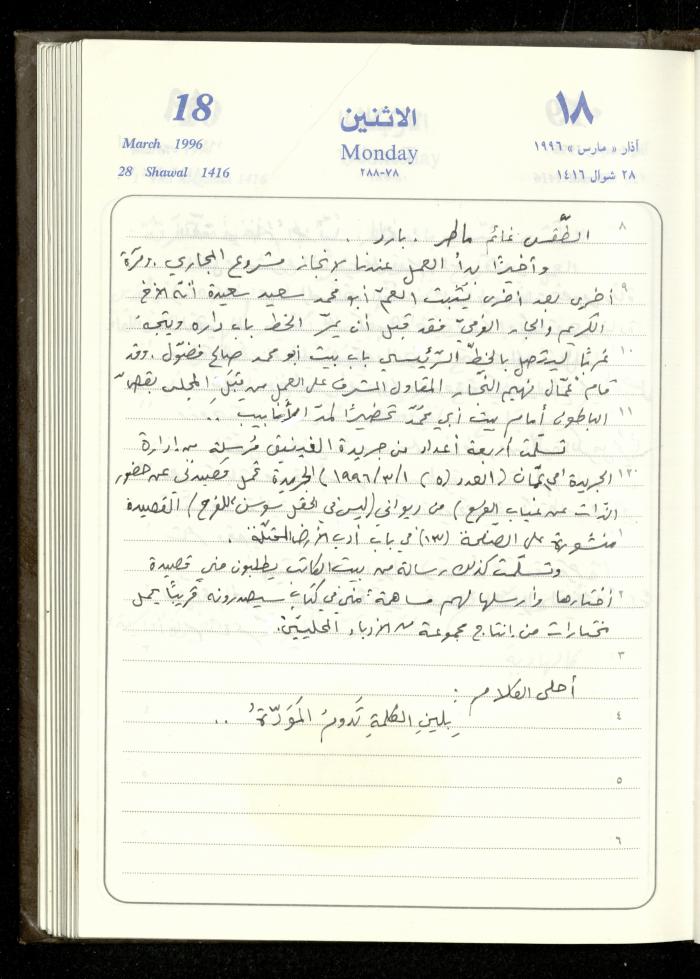 18
١٨
الاثنين
March 1996
Monday
آذار « مارس » ١٩٩٦
28 Shawal 1416
٧٨-٢٨٨
٢٨ شوال ١٤١٦
٨
الطّقس غائم ماطر . بارد .
وأخيرًا بدأ العمل عندنا لإنجاز مشروع المجاري . ومرّة
٩
أخرى بعد أخرى يُثبت العمّ أبو محمد سعيد سعيدة أنّه الأخ
الكريم والجار القوميّ فقد قبل أن يمرّ الخط بباب داره ويتجه
١٠
غربًا ليتّصل بالخطّ الرّئيسي بباب بيت أبو محمد صالح فضّول . وقد
قام عمّال فهيم النجّار المقاول المشرف على العمل من قِبَل المجلس بقصّ
١١
الباطون أمام بيت أبي محمّد تحضيرًا لمدّ الأنابيب ..
تسلّمت أربعة أعداد من جريدة الفينيق مُرسلة من إدارة
١٢
الجريدة في عمّان ( العدد (٥) ١/٣/١٩٩٦ ) الجريدة تحمل قصيدتي عن حضور
الذّات عن غياب الفرع ) من ديواني ( ليس في الحقل سوسن للفرح ) القصيدة
١
منشورة على الصفحة (١٣) في باب أدب الأرض المحتلّة .
وتسلّمت كذلك رسالة من بيت الكاتب يطلبون منّي قصيدة
٢
أختارها وأرسلها لهم مساهمة منّي في كتاب سيصدرونه قريبًا يحمل
مختارات من إنتاج مجموعة من الأدباء المحليّين .
٣
أحلى الكلام :
٤
بِلينِ الكلمةِ تَدومُ المَوَدّةُ ..
٥
٦